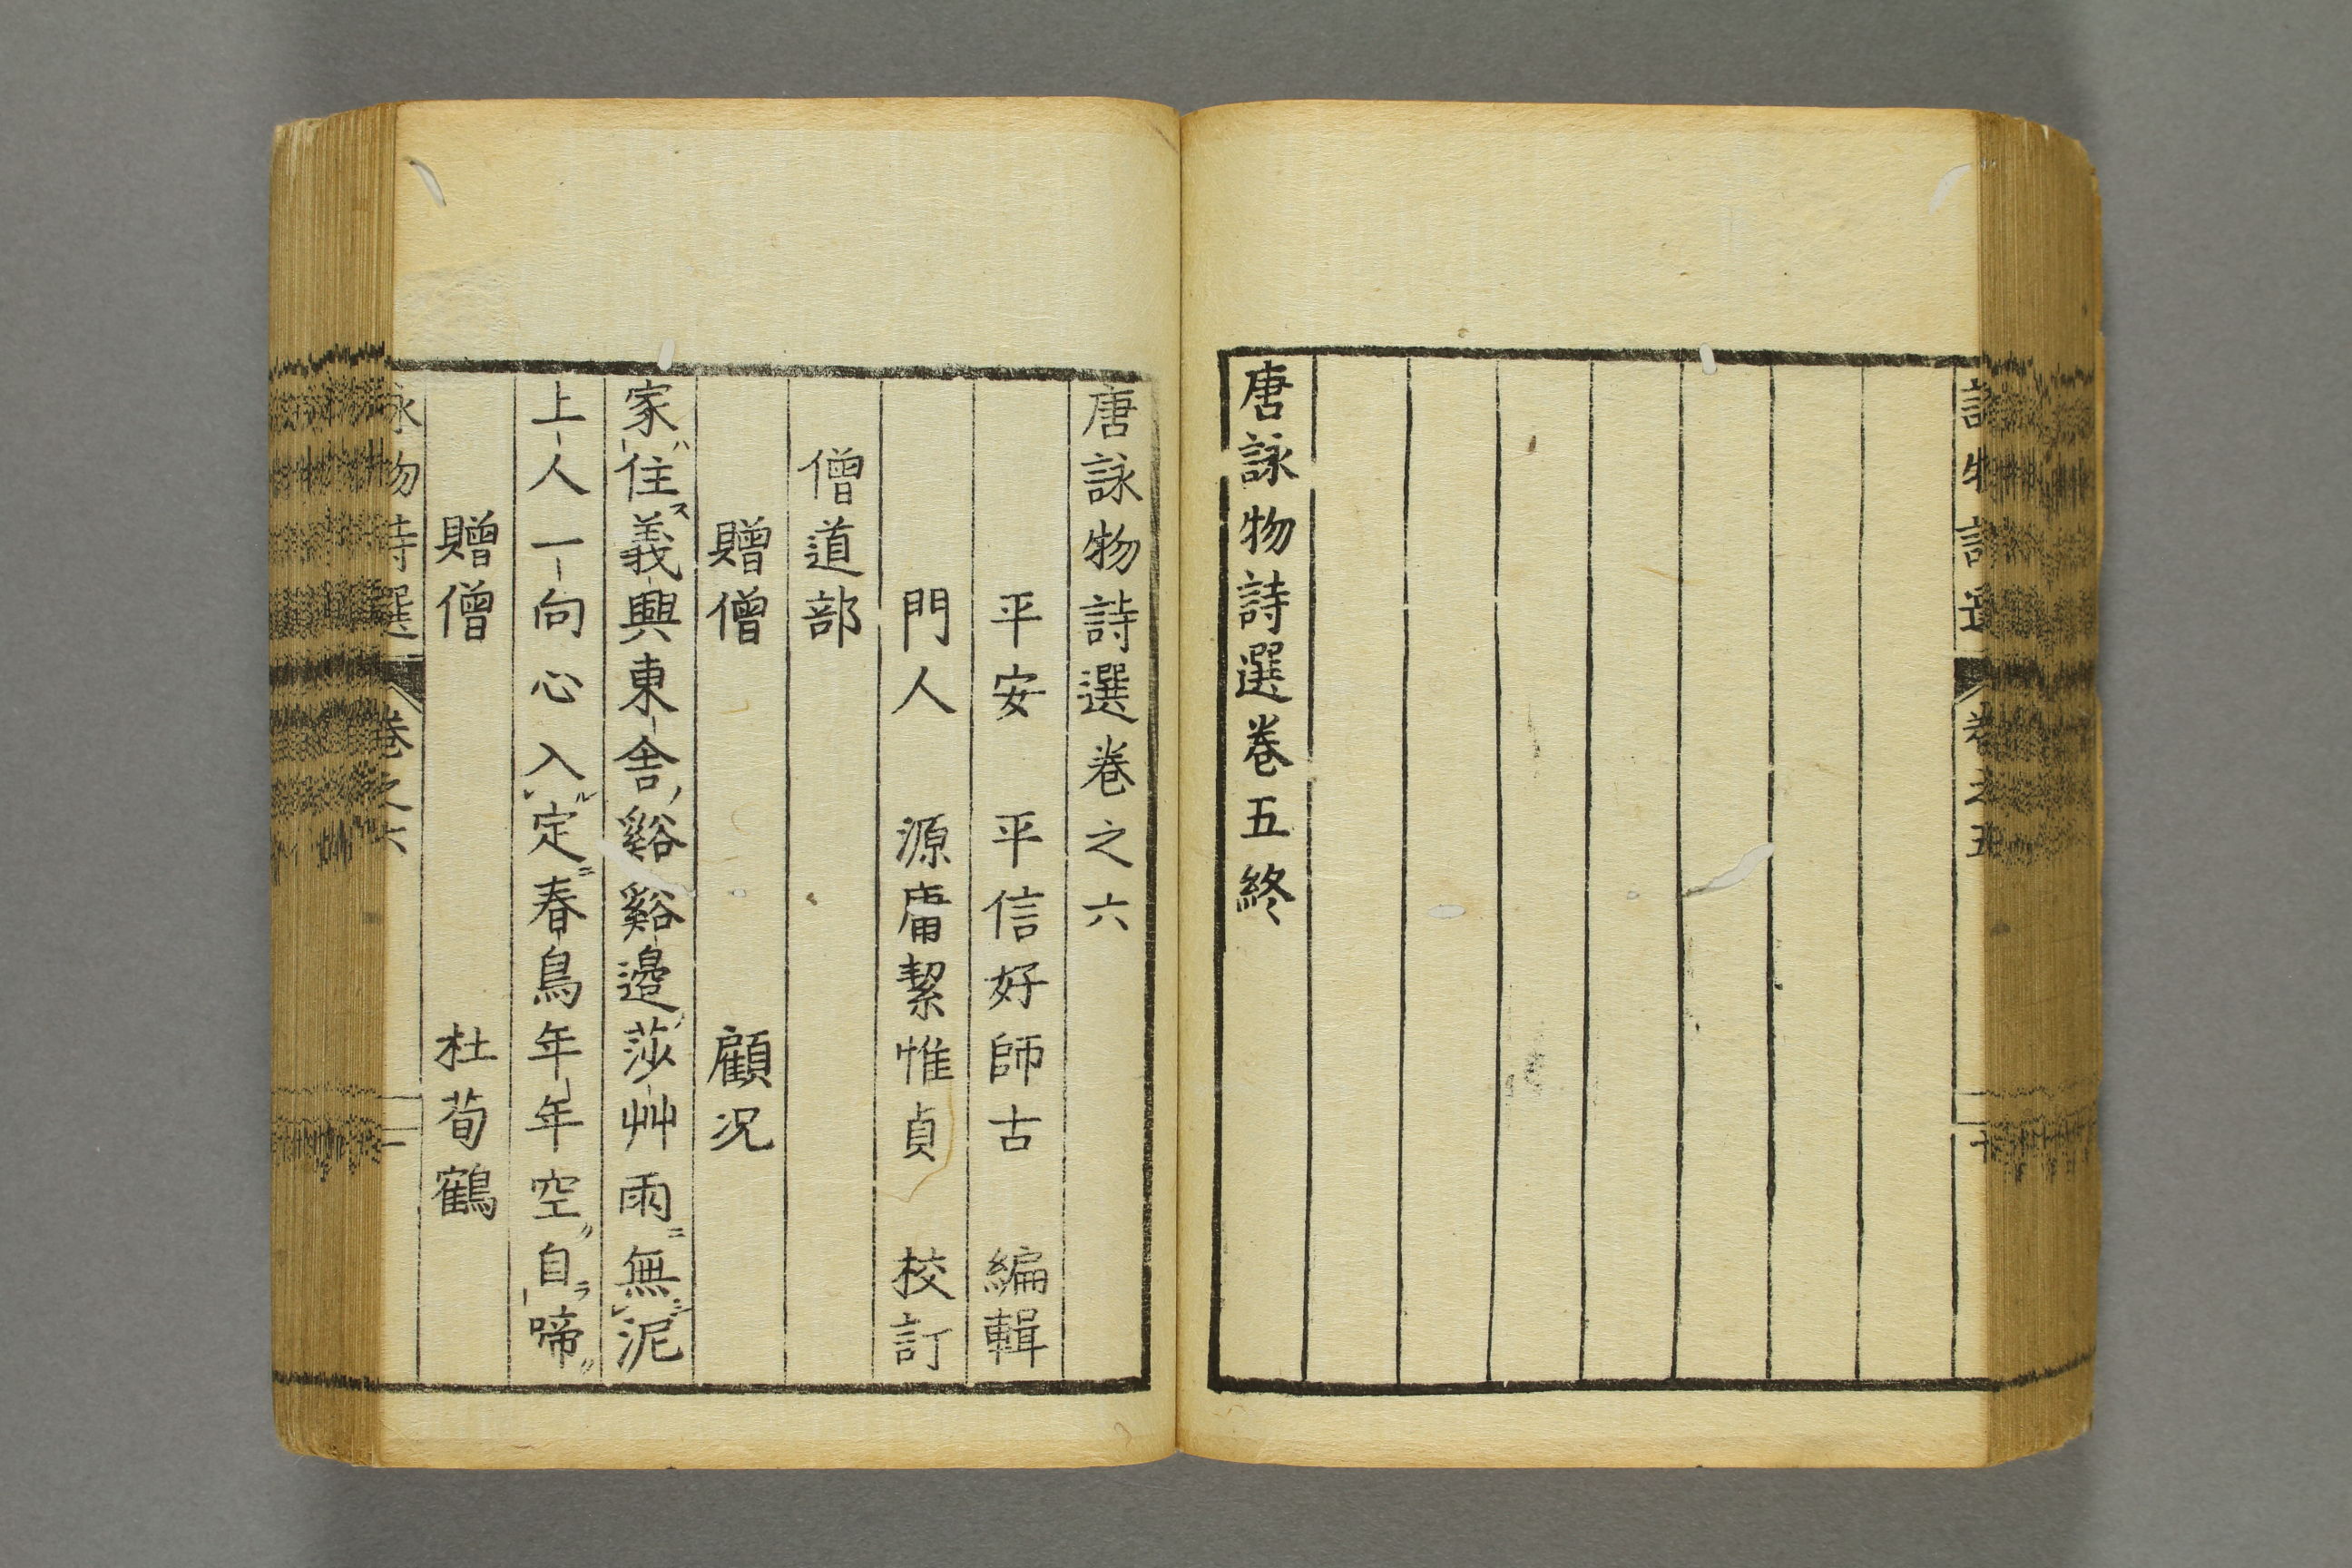 唐詠物詩選卷五終
唐詠物詩選卷之六
平安　平信好師古　編輯
門人　源庸絜惟貞　校訂
僧道部
贈僧　顧况
家ハ住ス義興東舎ノ谿谿邉ノ莎艸雨ニ無シ泥
上人一向心入ル定ニ春鳥年年空〃自ラ啼〃
贈僧　杜荀鶴
詠物詩選　卷之六　一